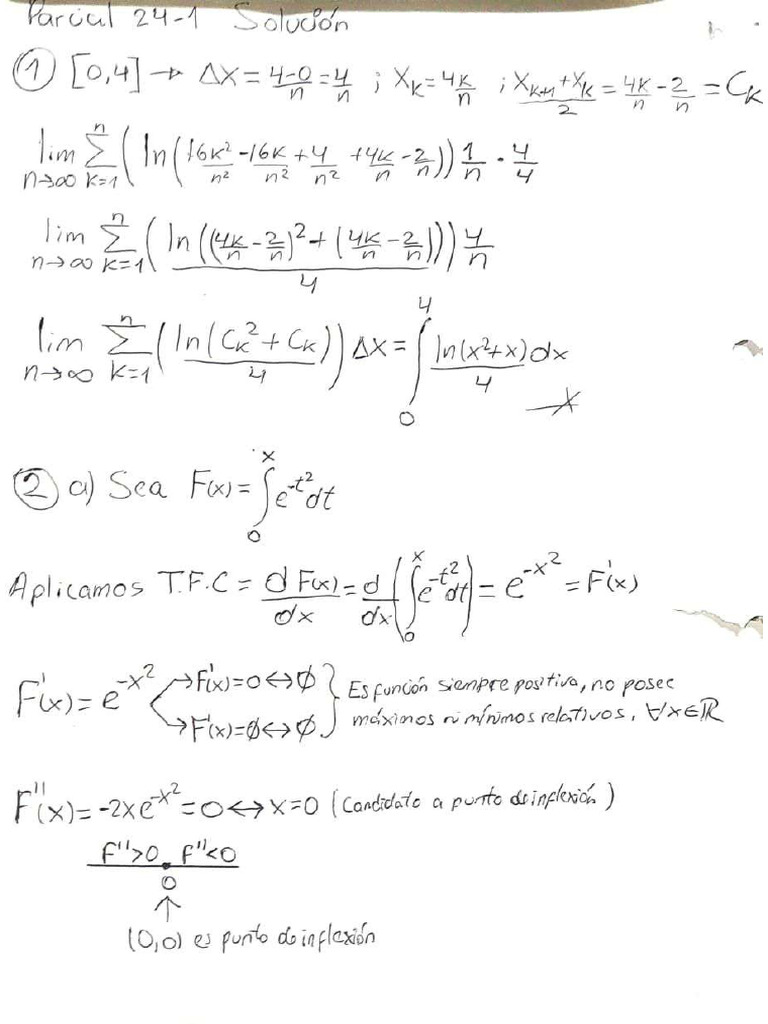 Parcial 24-1 Solución
① [0,4] → Δx = 4-0/n = 4/n ; Xk = 4k/n ; Xk+1 + Xk/2 = 4k/n - 2/n = Ck
lim n→∞ n∑k=1 (ln(16k²/n² - 16k/n² + 4/n² + 4k/n - 2/n)) 1/n · 4/4
lim n→∞ n∑k=1 (ln((4k/n - 2/n)² + (4k/n - 2/n)))/4 4/n
lim n→∞ n∑k=1 (ln(Ck² + Ck)/4) Δx = ∫₀⁴ ln(x²+x)/4 dx
② a) Sea F(x) = ∫₀ˣ e^-t² dt
Aplicamos T.F.C = d F(x)/dx = d/dx (∫₀ˣ e^-t² dt) = e^-x² = F'(x)
F'(x) = e^-x² → F'(x) = 0 ↔ ∅ } Es función siempre positiva, no posee
→ F'(x) = ∅ ↔ ∅ } máximos ni mínimos relativos, ∀x∈ℝ
F''(x) = -2xe^-x² = 0 ↔ x=0 (Candidato a punto de inflexión)
F''>0 . F''<0
0
↑
(0,0) es punto de inflexión